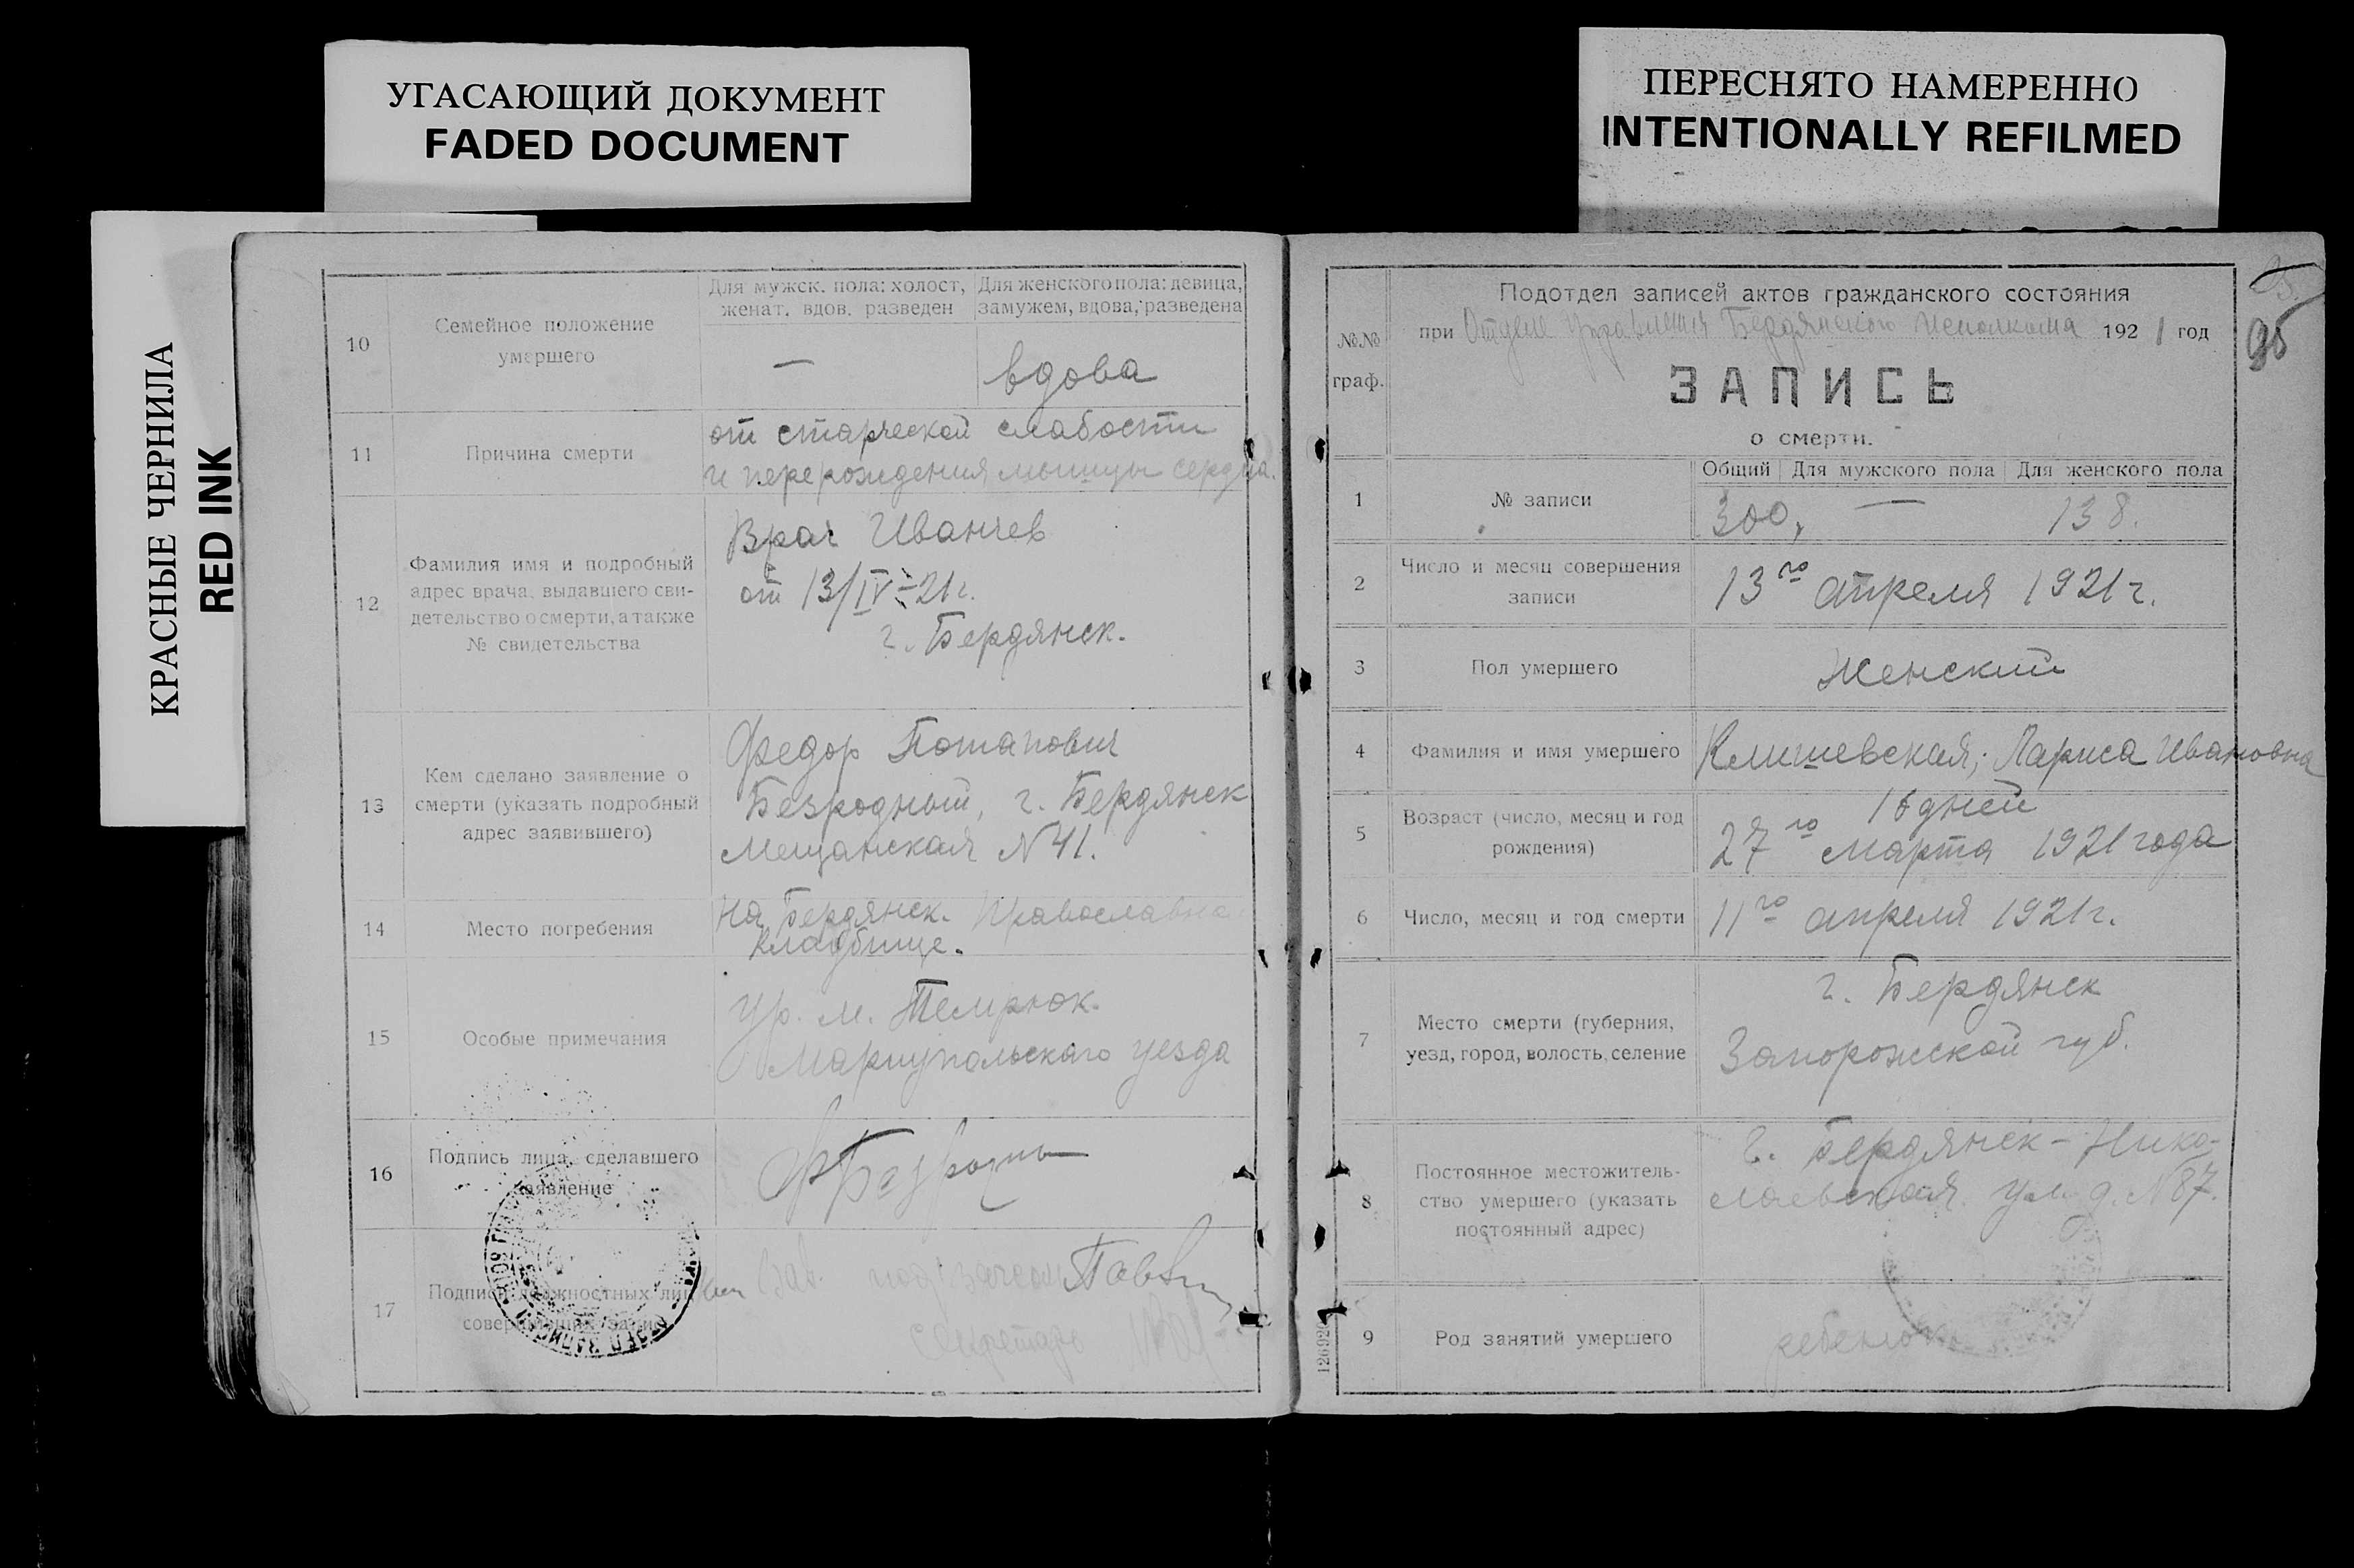 УГАСАЮЩИЙ ДОКУМЕНТ
FADED DOCUMENT
ПЕРЕСНЯТО НАМЕРЕННО
INTENTIONALLY REFILMED
КРАСНЫЕ ЧЕРНИЛА
RED INK
10
Семейное положение
умершего
Для мужск. пола: холост,
женат, вдов, разведен
Для женского пола: девица,
замужем, вдова, разведена
—
вдова
11
Причина смерти
от старческой слабости
и перерождения мышцы сердца.
12
Фамилия имя и подробный
адрес врача, выдавшего сви-
детельство о смерти, а также
№ свидетельства
Врач Иванчев
от 13/IV-21г.
г. Бердянск.
13
Кем сделано заявление о
смерти (указать подробный
адрес заявившего)
Федор Потапович
Безродный, г. Бердянск
Мещанская № 41.
14
Место погребения
На Бердянск. Православно
кладбище.
15
Особые примечания
Ур. м. Темрюк.
Мариупольскаго уезда
16
Подпись лица, сделавшего
заявление
ФБезродны
17
Подписи должностных лиц,
совершивших запись
Зав.
Секретарь
95
№№
граф.
Подотдел записей актов гражданского состояния
при Отделе Управления Бердянского Исполкома 1921 год
ЗАПИСЬ
о смерти.
1
№ записи
Общий
Для мужского пола
Для женского пола
300,
—
138.
2
Число и месяц совершения
записи
13го апреля 1921г.
3
Пол умершего
Женский
4
Фамилия и имя умершего
Клишевская, Лариса Ивановна
5
Возраст (число, месяц и год
рождения)
16 дней
27го марта 1921 года
6
Число, месяц и год смерти
11го апреля 1921г.
7
Место смерти (губерния,
уезд, город, волость, селение
г. Бердянск
Запорожской губ.
8
Постоянное местожитель-
ство умершего (указать
постоянный адрес)
г. Бердянск - Нико-
лаевская ул. д. № 87.
9
Род занятий умершего
ребенок